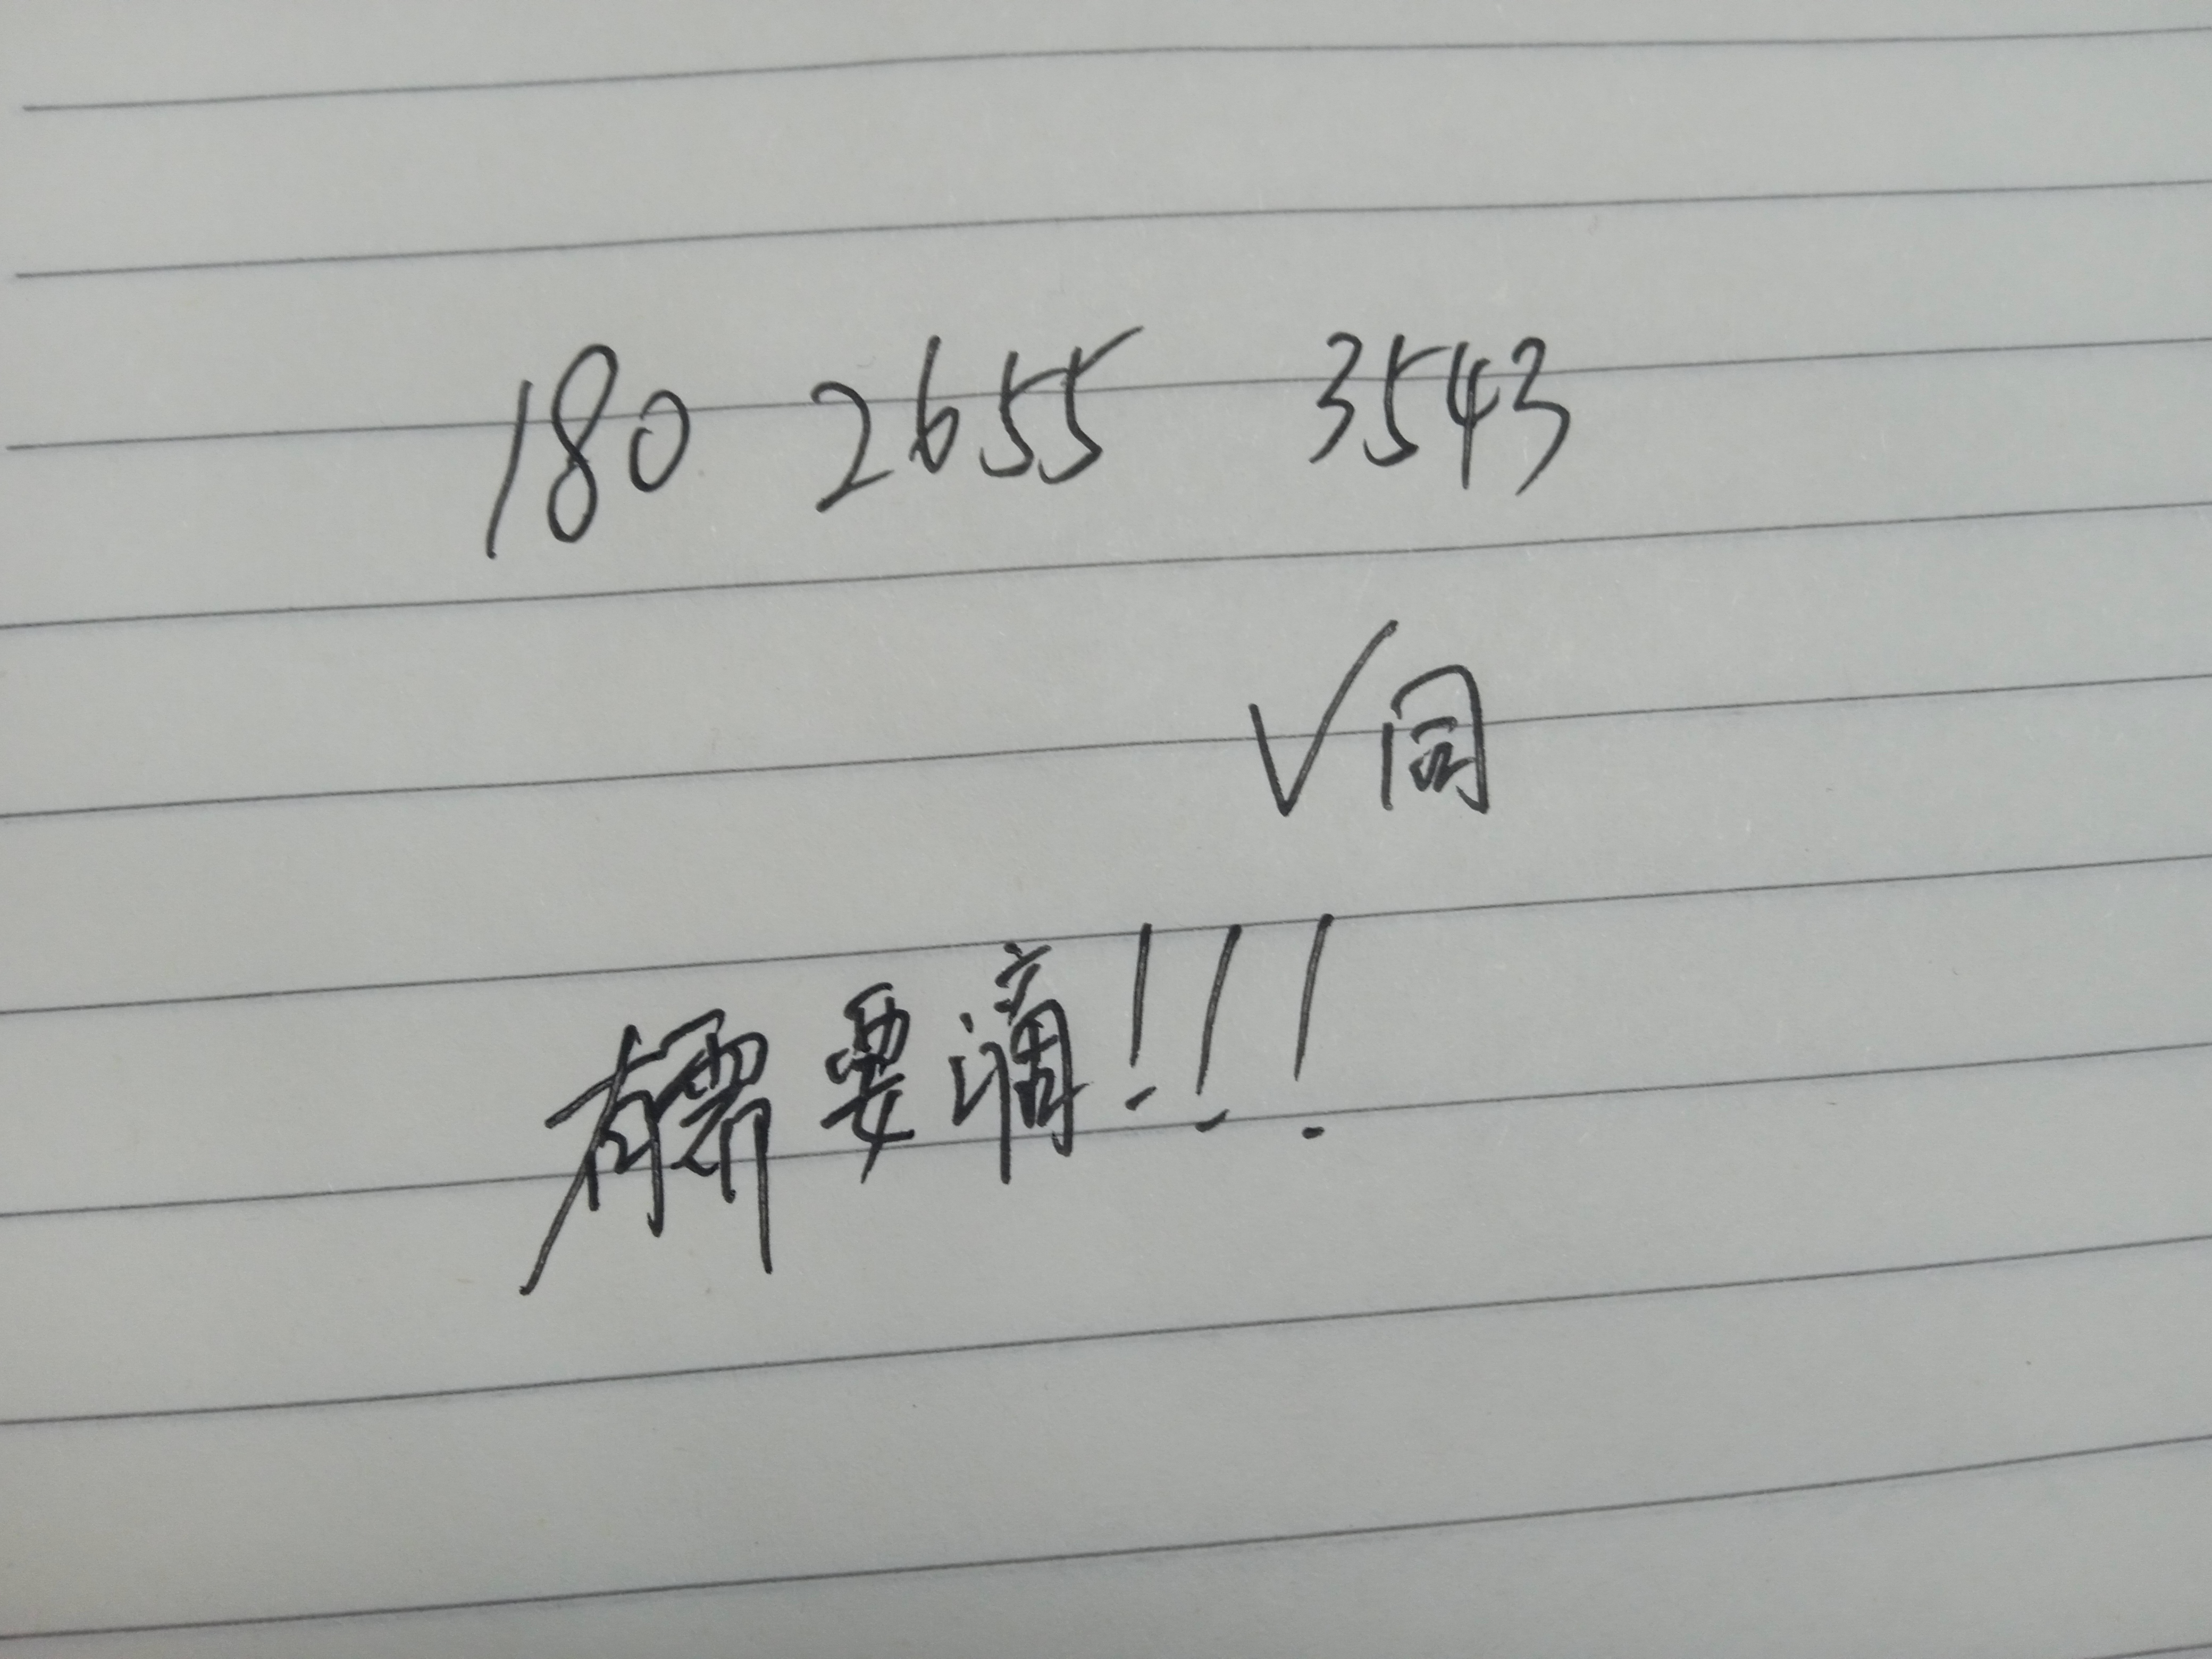 180 2655 3543
V同
有需要滴!!!